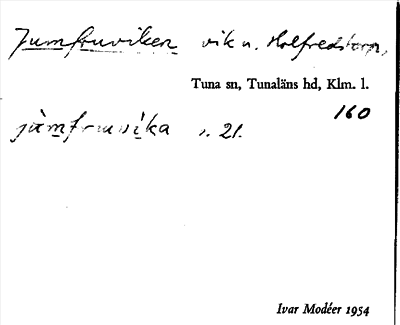 Jumfruviken vik u. Holfredstorp,
Tuna sn, Tunaläns hd, Klm. l.
160
jùmfruvìka s. 21.
Ivar Modéer 1954